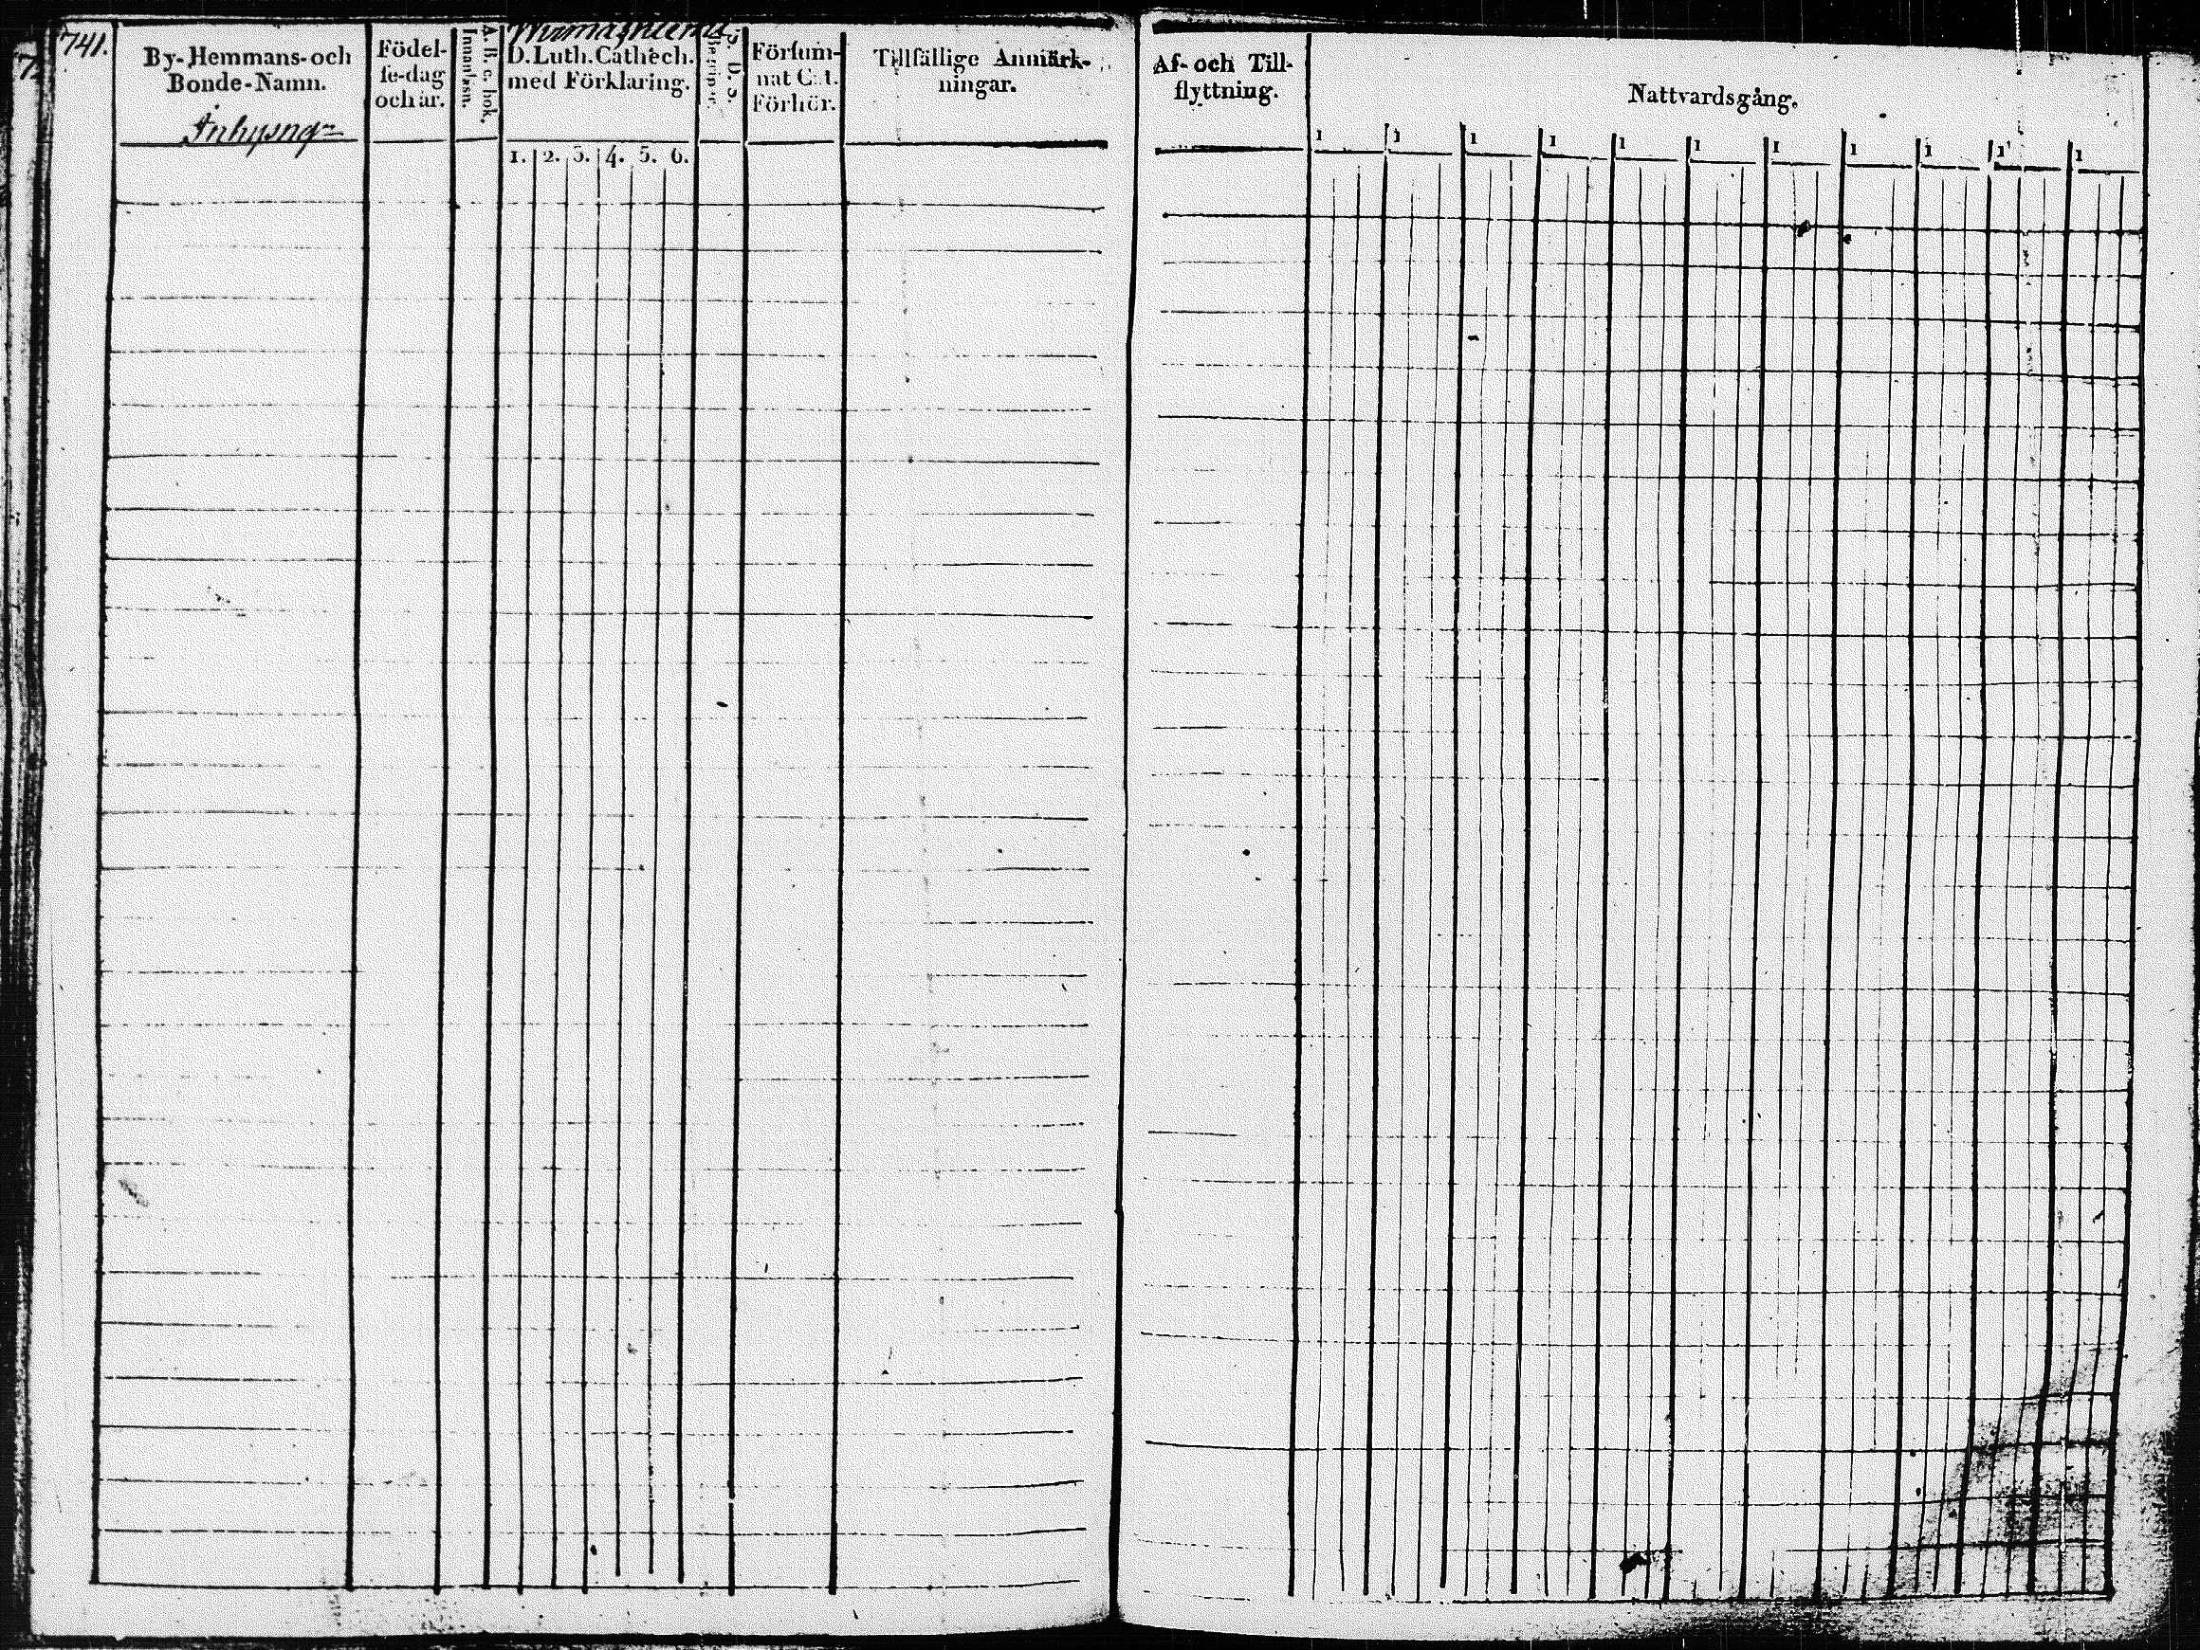 741.
By-Hemmans-och
Bonde-Namn.
Inhysng
Födel-
se-dag
och år.
A. B. c. bok.
Innanläsn.
D. Luth. Cathech.
med Förklaring.
1. 2. 3. 4. 5. 6.
Försum-
nat Cat.
Förhör.
Tillfällige Anmärk-
ningar.
Af- och Till-
flyttning.
Nattvardsgång.
1 1 1 1 1 1 1 1 1 1 1